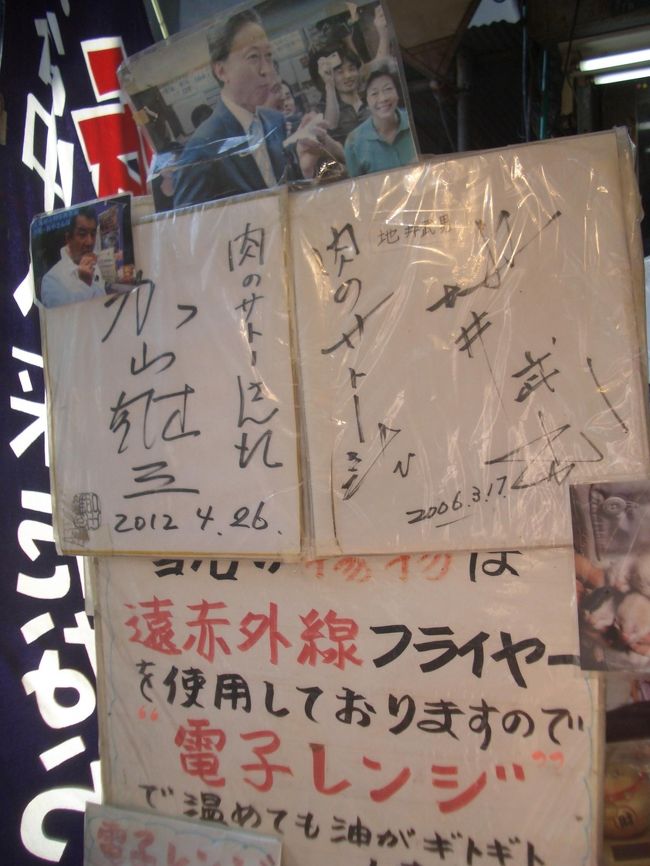 肉のサトーさん江
加山雄三
2012 4.26.
地井武男
肉のサトーさん
地井武男
2006.3.17.
当店の揚物は
遠赤外線フライヤー
を使用しておりますので
"電子レンジ"
で温めても油がギトギト
電子レンジ